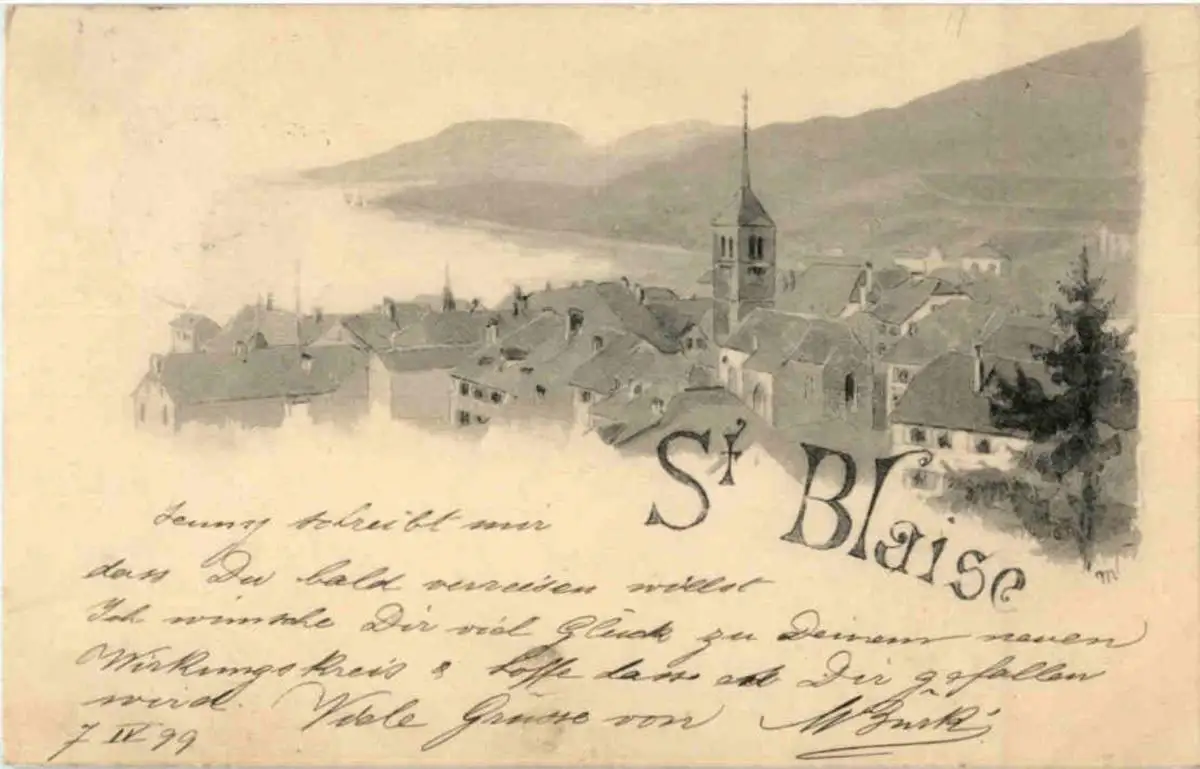 St Blaise
Jenny schreibt mir
dass Du bald verreisen willst
Ich wünsche Dir viel Glück zu Deinem neuen
Wirkungskreis & hoffe dass es Dir gefallen
wird. Viele Grüsse von M
7 IV 99